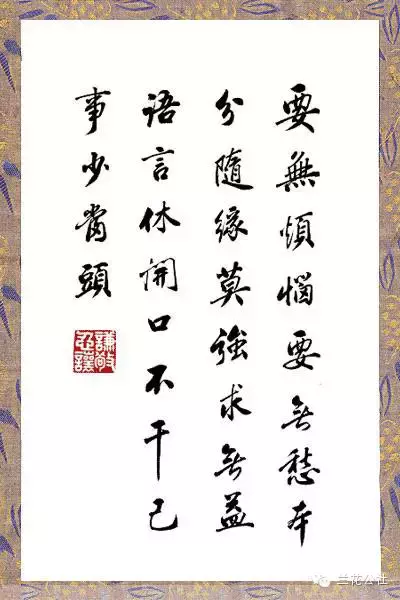 要無煩惱要無愁本
分隨緣莫強求無益
語言休開口不干己
事少當頭
謙敬
忍讓
兰花公社